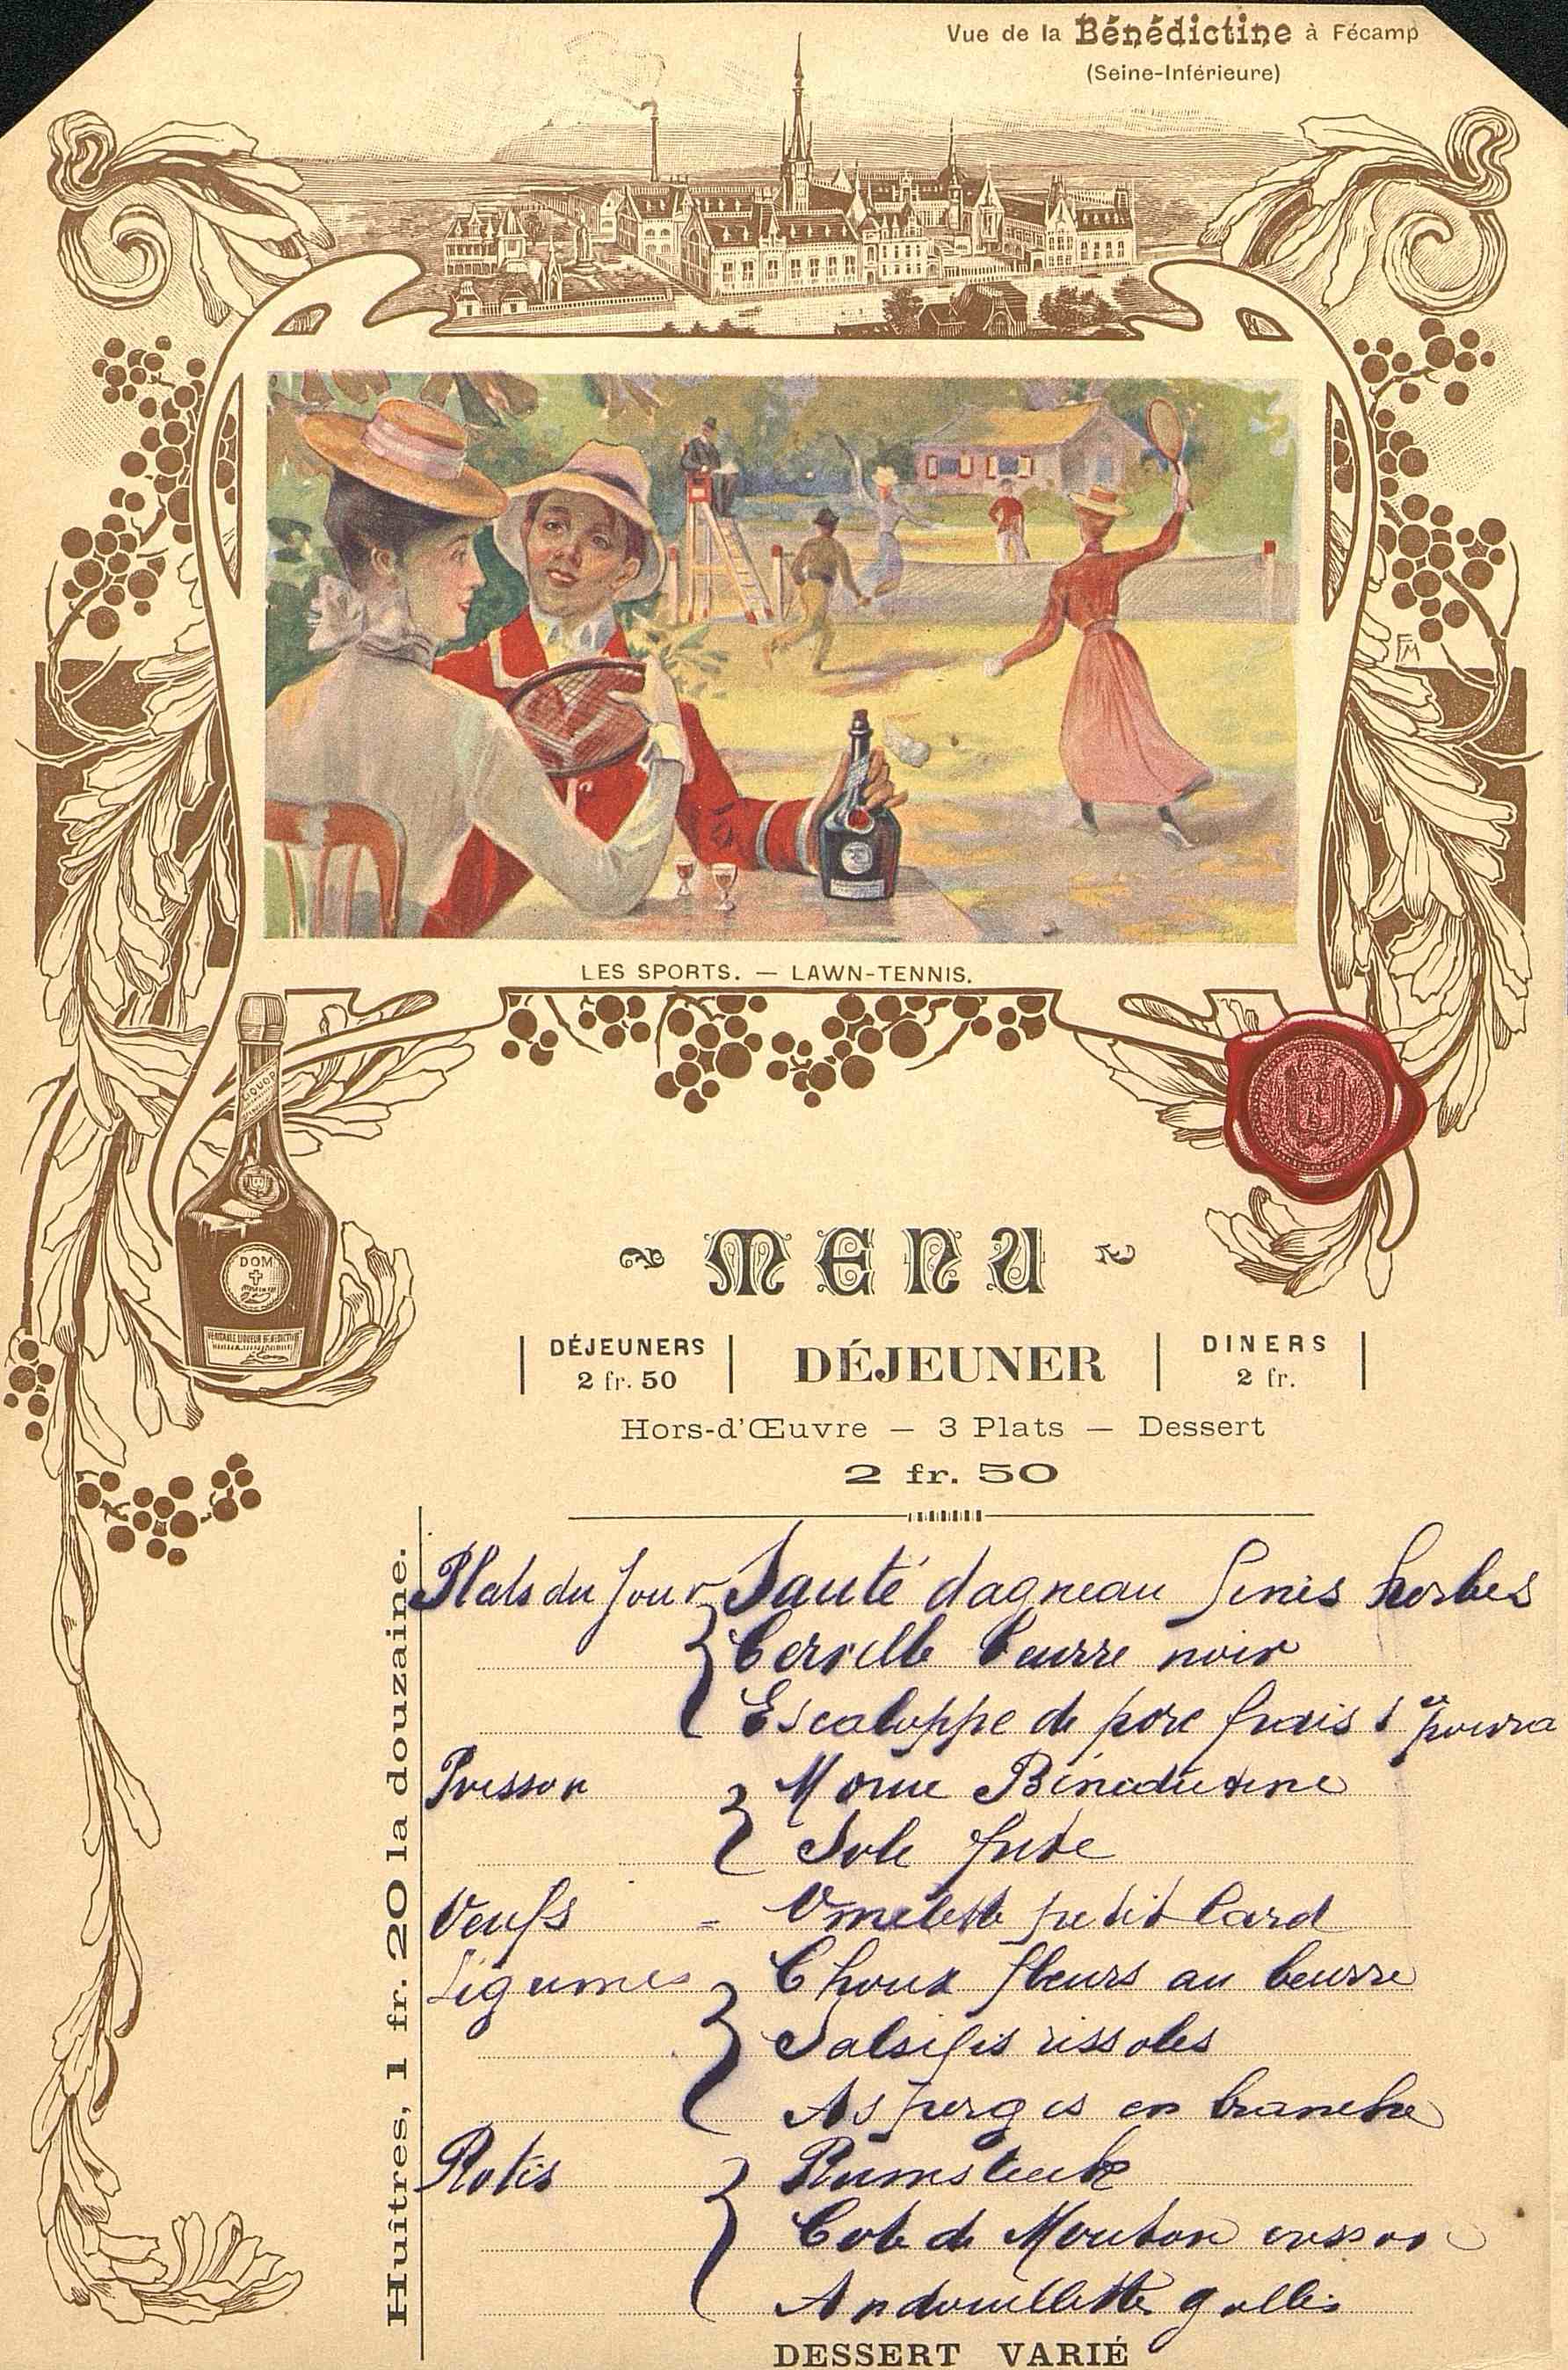 Vue de la Bénédictine à Fécamp
(Seine-Inférieure)
FM
LES SPORTS. — LAWN-TENNIS.
LIQUOR
DOM
VERITABLE LIQUEUR BENEDICTINE
MENU
DÉJEUNERS
2 fr. 50
DÉJEUNER
DINERS
2 fr.
Hors-d'Œuvre — 3 Plats — Dessert
2 fr. 50
Huîtres, 1 fr. 20 la douzaine.
Plats du Jour Sauté dagneau finis herbes
Cervelle beurre noir
Escaloppe de porc frais
Poisson Morue Bénédictine
Sole frite
Oeufs = Omelette petit lard
Légumes Choux fleurs au beurre
Salsifis rissoles
Asperges en branche
Rotis Rumsteck
Cote de Mouton cresson
Andouillette grillée
DESSERT VARIÉ